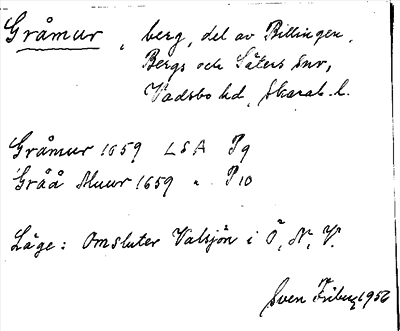 Gråmur, berg, del av Billingen,
Bergs och Säters snr,
Vadsbo hd, Skarab. l.
Gråmur 1659 LSA P9
Gråå Muur 1659 " P10
Läge: Omsluter Valsjön i Ö, N, V.
Sven Friberg 1956